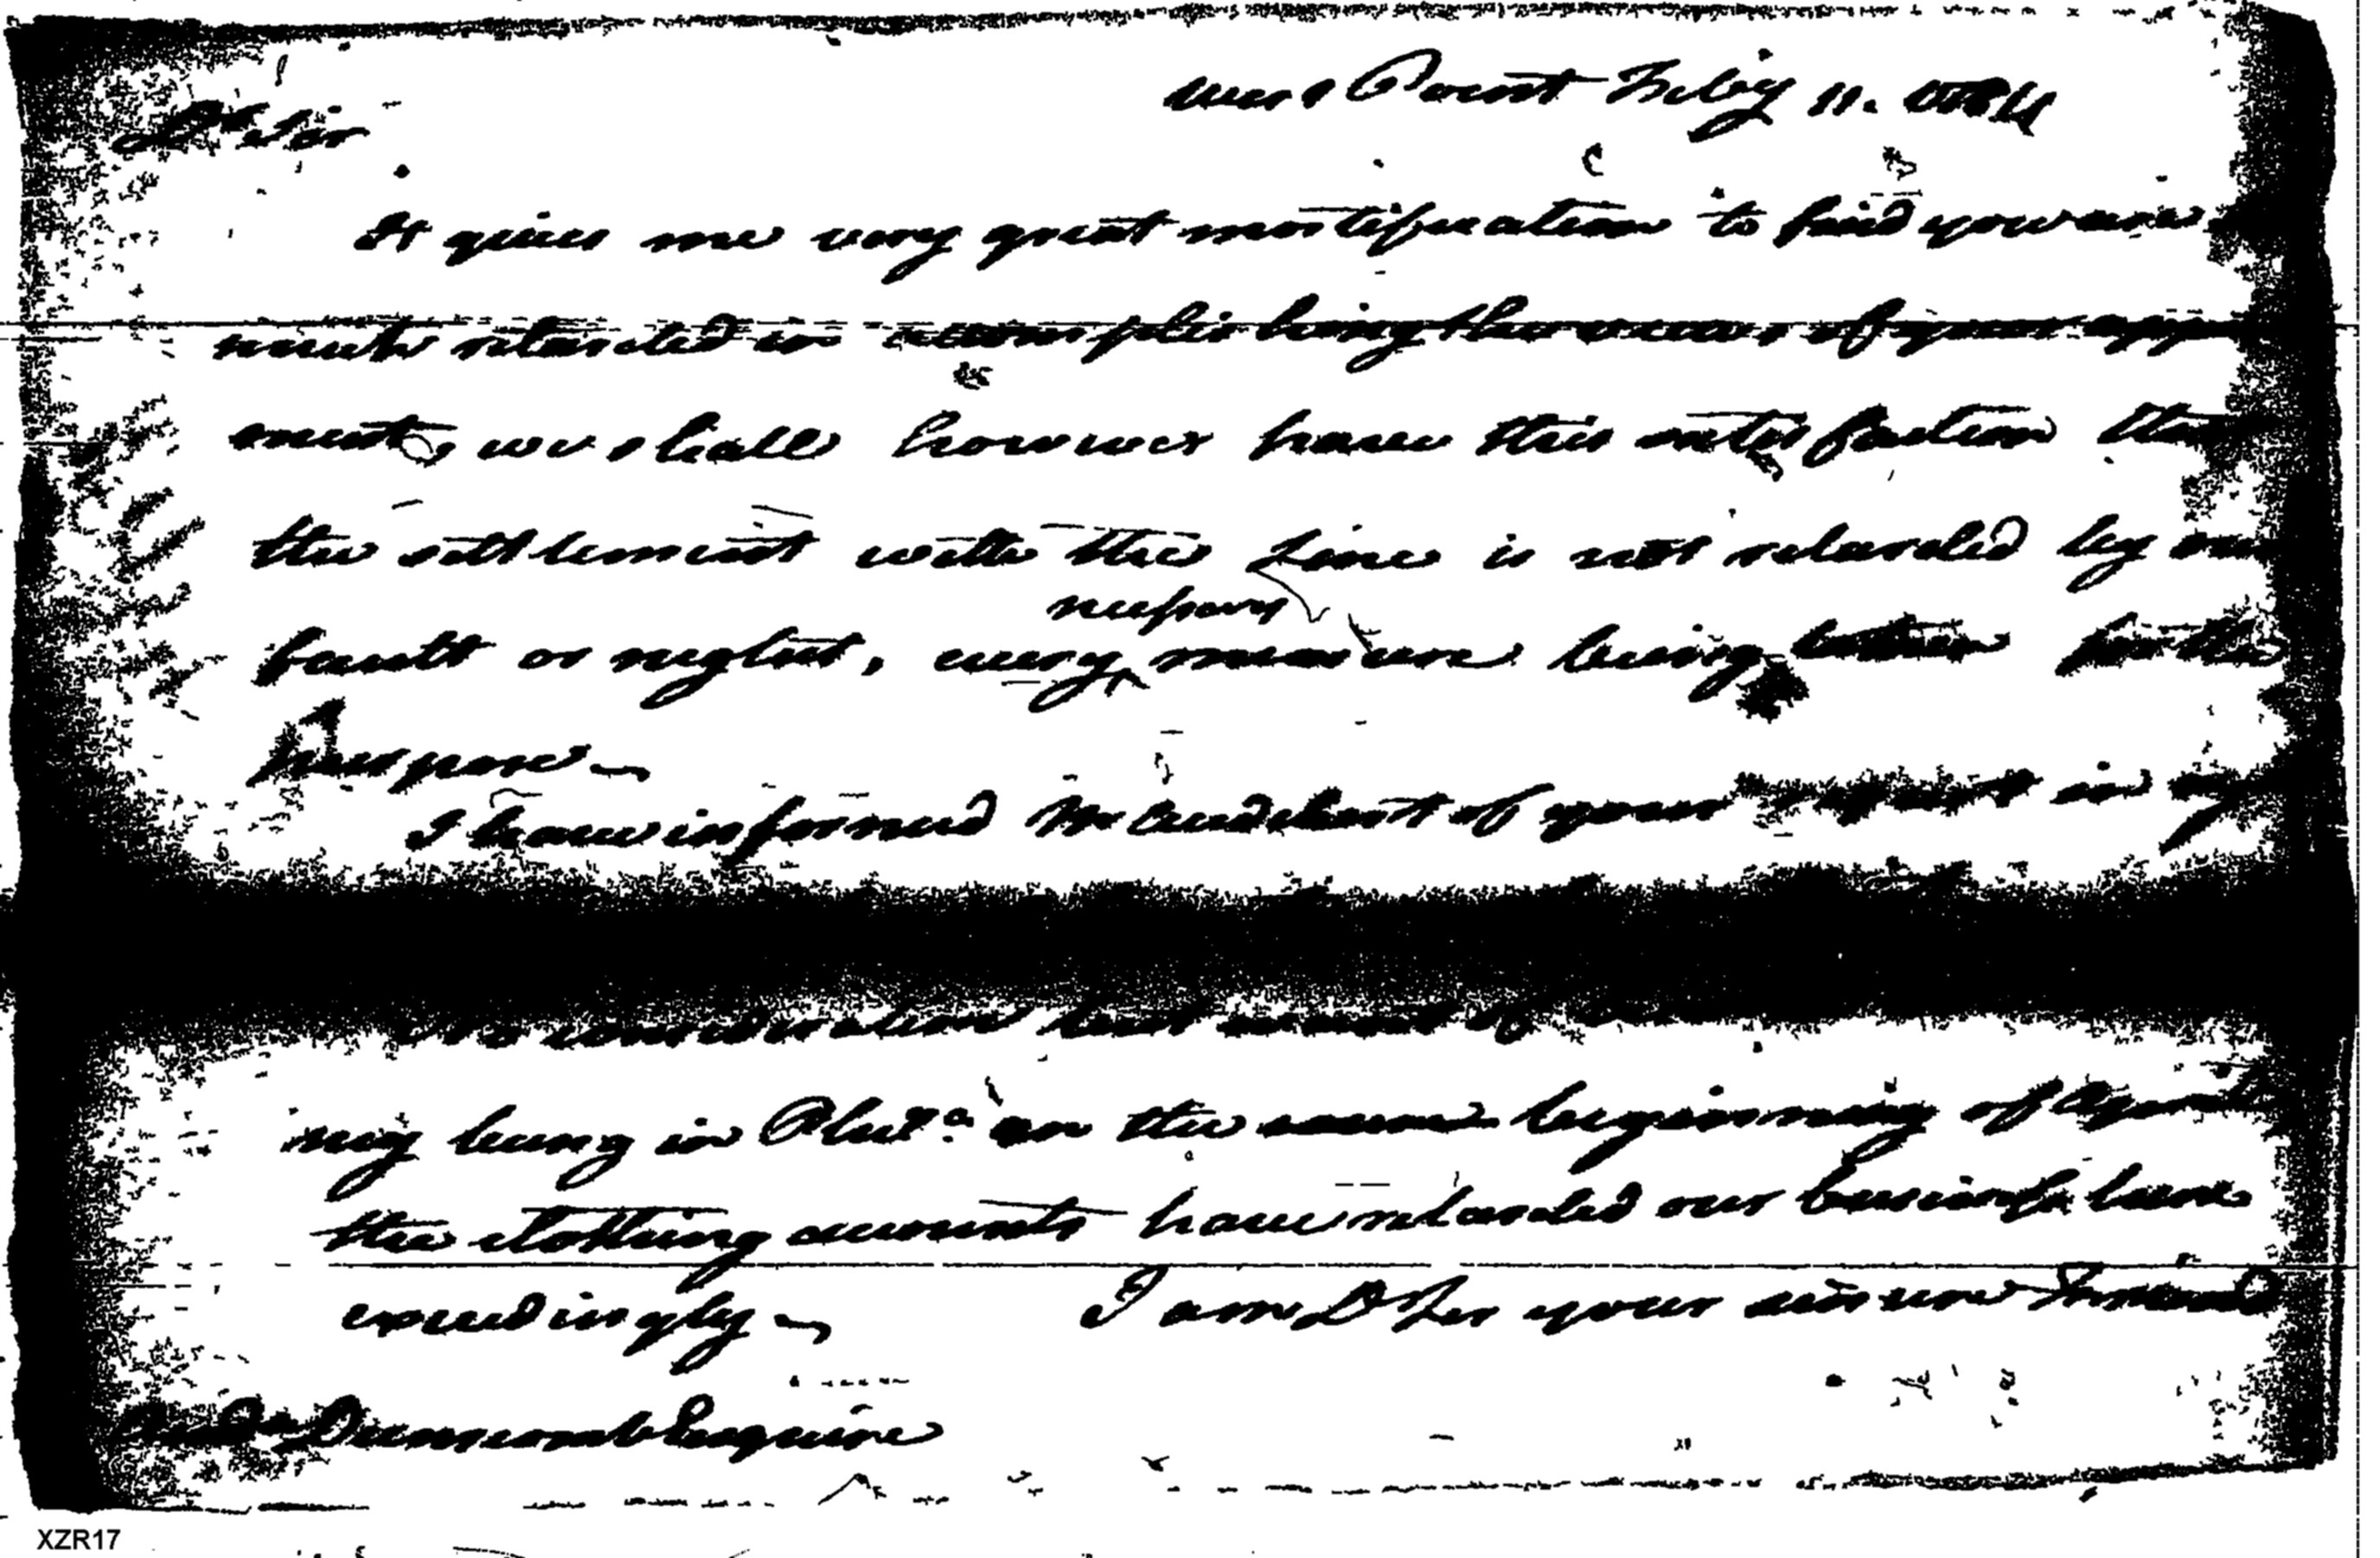 West Point Feby 11. 1784
Dr Sir
It gives me very great mortification to find you are so
much retarded in accomplishing the views of your appoint
ment, we shall however have this satisfaction that
the settlement with the Line is not retarded by our
necessary
fault or neglect, every measure being taken for the
Purpose—
I have informed Mr Audebert of your request in
no consideration but account of
my being in Phila. on the beginning of April
the clothing accounts have retarded our business here
exceedingly— I am D Sir your sincere Friend
Dunscomb Esquire
XZR17